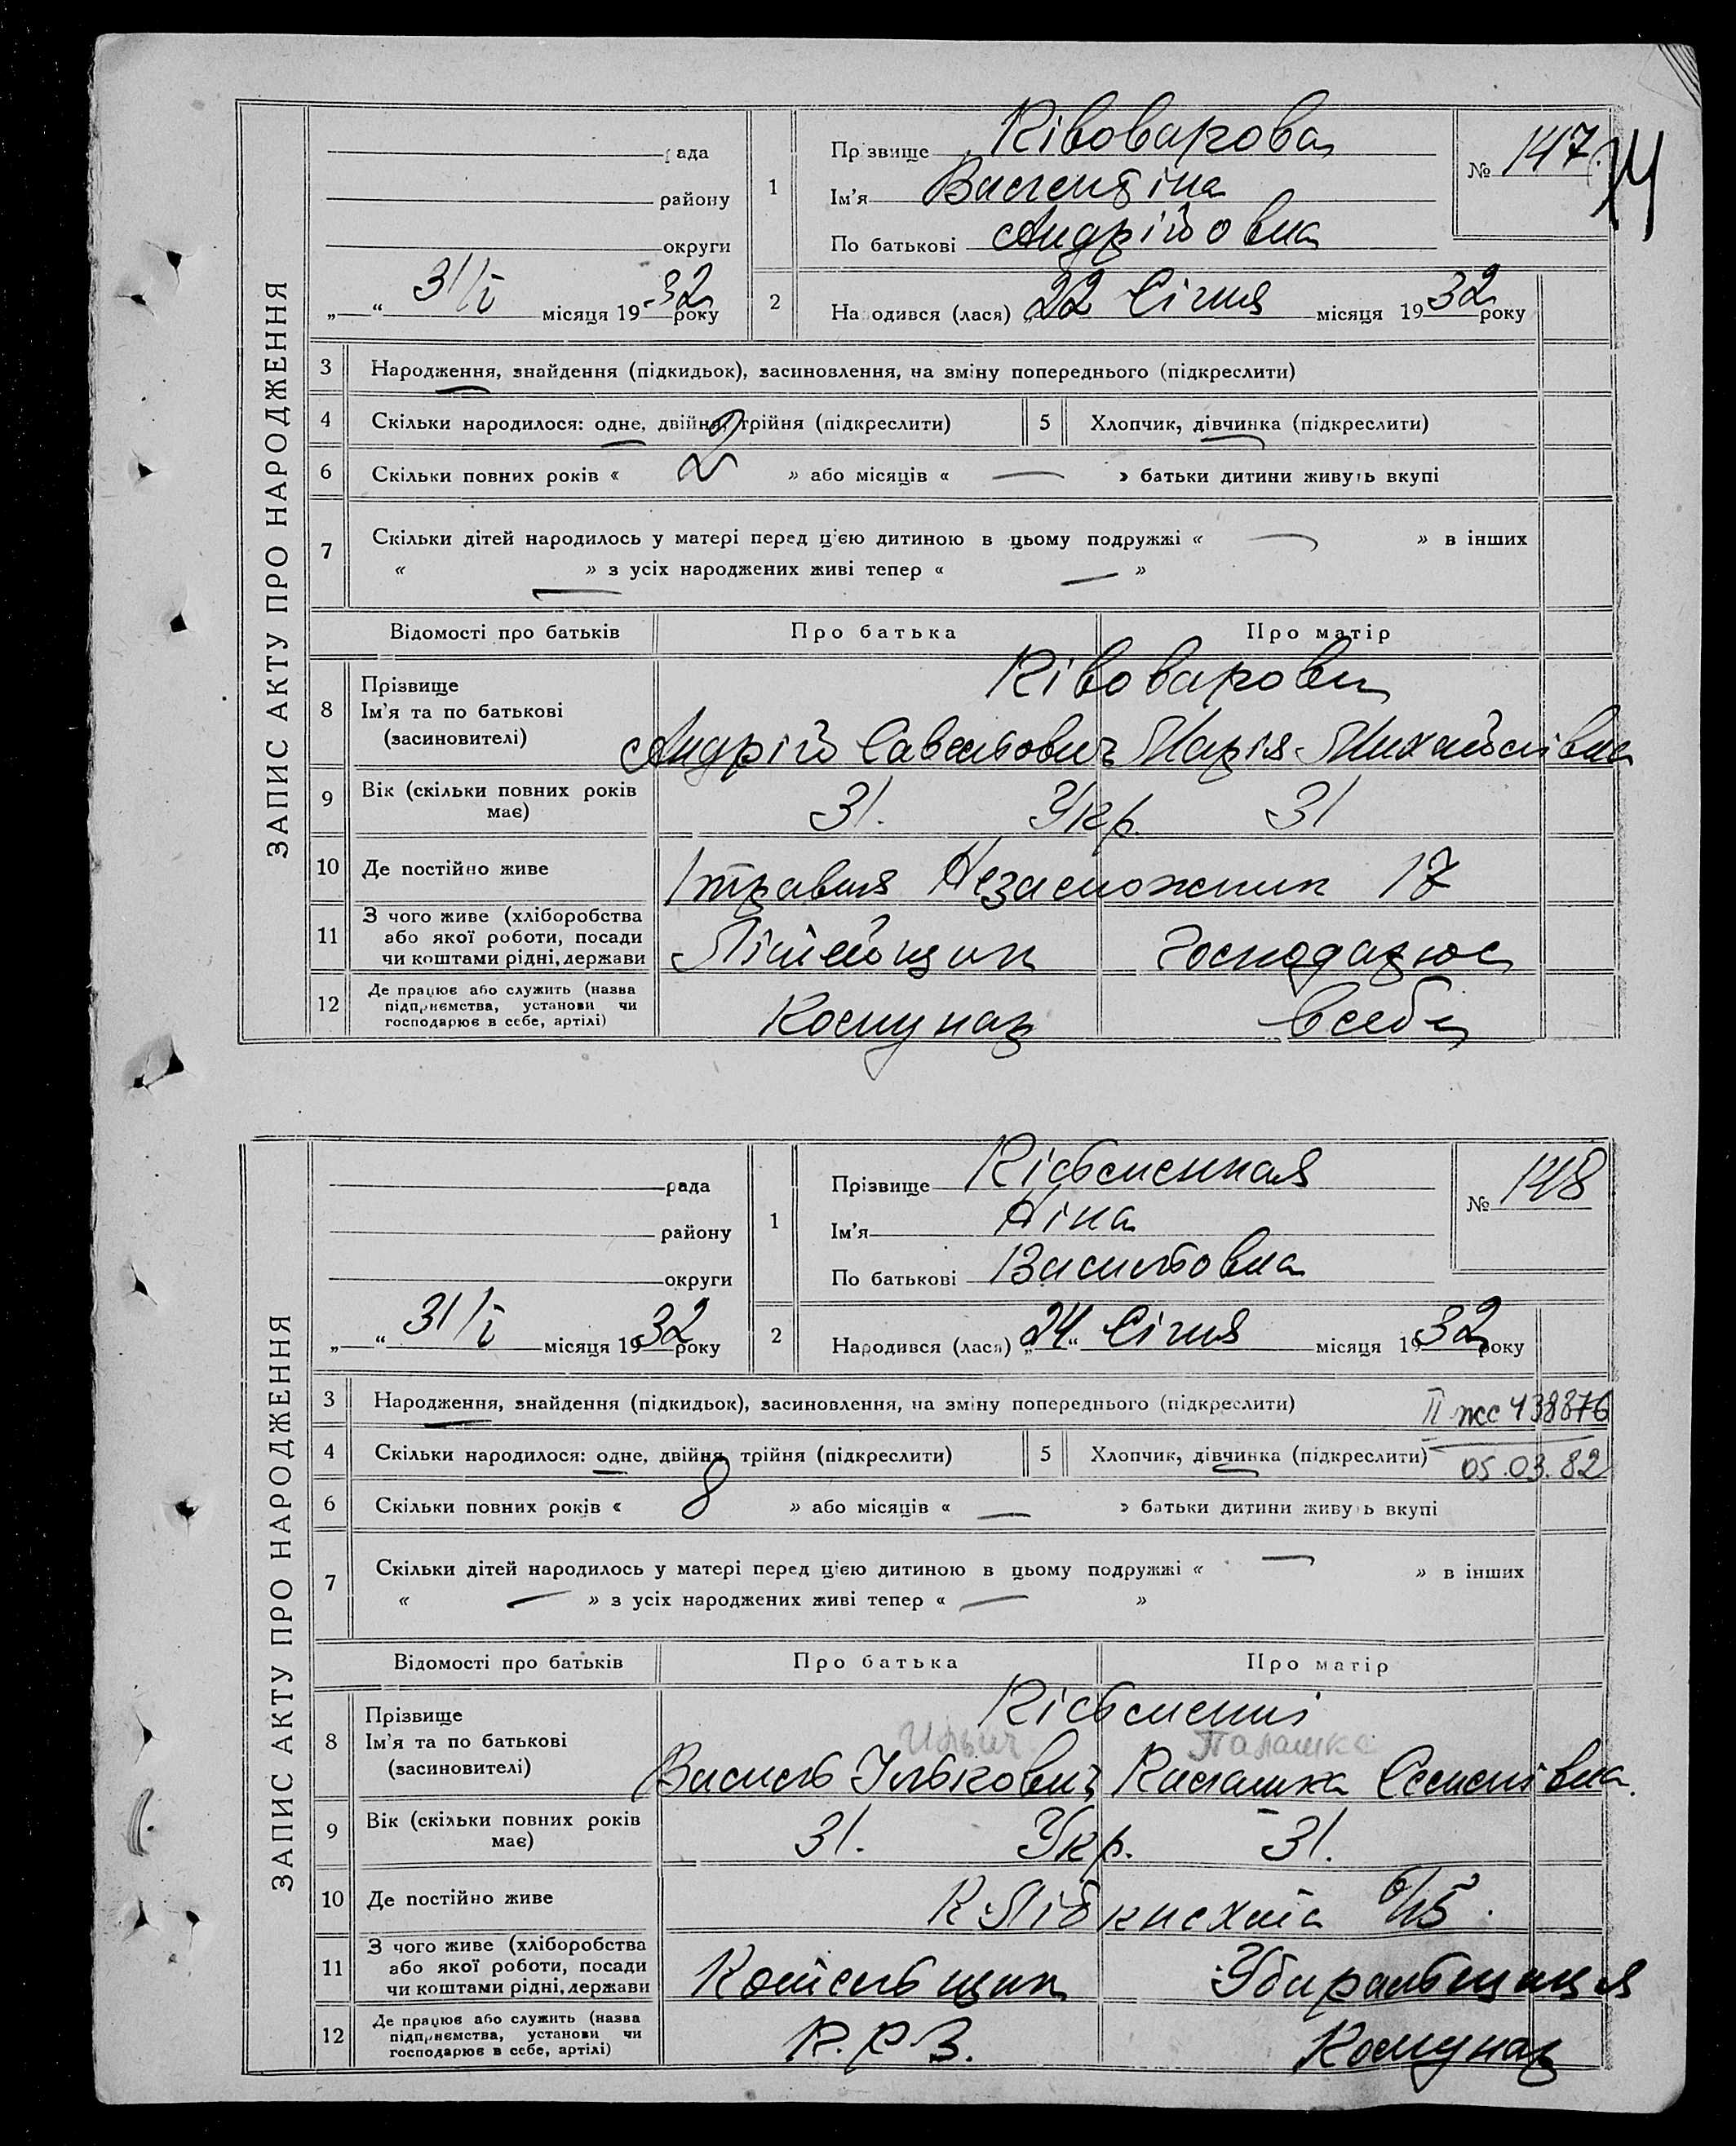 ЗАПИС АКТУ ПРО НАРОДЖЕННЯ
рада
району
округи
„ “ 31/I місяця 1932 року
1 Прізвище Півоварова
Ім'я Валентіна
По батькові Андрійовна
№ 147.
2 Народився (лася) „22 Січня місяця 1932 року
3 Народження, знайдення (підкидьок), засиновлення, на зміну попереднього (підкреслити)
4 Скільки народилося: одне, двійня, трійня (підкреслити) 5 Хлопчик, дівчинка (підкреслити)
6 Скільки повних років « 2 » або місяців « — » батьки дитини живуть вкупі
7 Скільки дітей народилось у матері перед цією дитиною в цьому подружжі « — » в інших
« — » з усіх народжених живі тепер « — »
Відомості про батьків Про батька Про матір
8 Прізвище
Ім'я та по батькові
(засиновителі)
Півоварови
Андрій Савельович Марія Михайлівна
9 Вік (скільки повних років має) 31. Укр. 31
10 Де постійно живе 1 травня Незаможник 17
11 З чого живе (хліборобства або якої роботи, посади чи коштами рідні, держави Літейщик Господарює
12 Де працює або служить (назва підприємства, установи чи господарює в себе, артілі) Комунар в себе
ЗАПИС АКТУ ПРО НАРОДЖЕННЯ
рада
району
округи
„ “ 31/I місяця 1932 року
1 Прізвище Пісьменная
Ім'я Ніна
По батькові Васильовна
№ 148
2 Народився (лася) „24“ Січня місяця 1932 року
3 Народження, знайдення (підкидьок), засиновлення, на зміну попереднього (підкреслити)
II жс 438876
05.03.82
4 Скільки народилося: одне, двійня, трійня (підкреслити) 5 Хлопчик, дівчинка (підкреслити)
6 Скільки повних років « 8 » або місяців « — » батьки дитини живуть вкупі
7 Скільки дітей народилось у матері перед цією дитиною в цьому подружжі « — » в інших
« — » з усіх народжених живі тепер « — »
Відомості про батьків Про батька Про матір
8 Прізвище
Ім'я та по батькові
(засиновителі)
Пісьменні
Ильич Палашка
Василь Улькович Палашка Семенівна.
9 Вік (скільки повних років має) 31. Укр. 31.
10 Де постійно живе К. Лібкнехта 6/45.
11 З чого живе (хліборобства або якої роботи, посади чи коштами рідні, держави Котельщик Убиральщиця
12 Де працює або служить (назва підприємства, установи чи господарює в себе, артілі) П. Р. З. Комунар